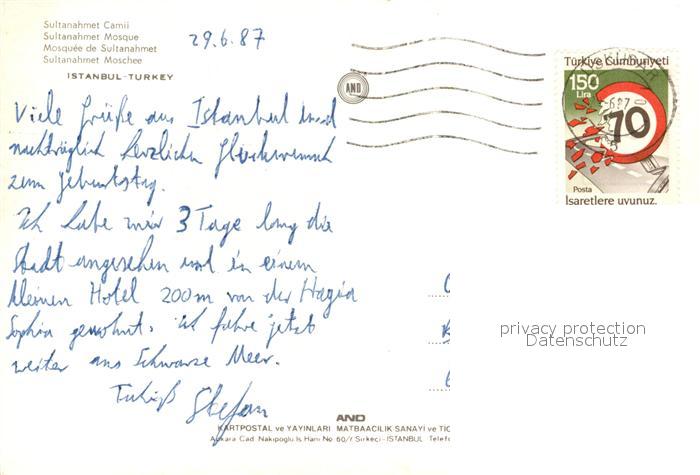 Sultanahmet Camii
Sultanahmet Mosque
Mosquée de Sultanahmet
Sultanahmet Moschee
ISTANBUL-TURKEY
29.6.87
AND
Türkiye Cumhuriyeti
150
Lira
70
Posta
İşaretlere uyunuz.
Viele Grüße aus Istanbul und
nachträglich herzlichen Glückwunsch
zum Geburtstag.
Ich habe mir 3 Tage lang die
Stadt angesehen und in einem
kleinen Hotel 200m von der Hagia
Sophia gewohnt. Ich fahre jetzt
weiter ans Schwarze Meer.
Stefan
privacy protection
Datenschutz
AND
KARTPOSTAL ve YAYINLARI MATBAACILIK SANAYİ ve TİC
Ankara Cad. Nakıpoğlu İş Hanı No 60/7 Sirkeci-İSTANBUL Telefo